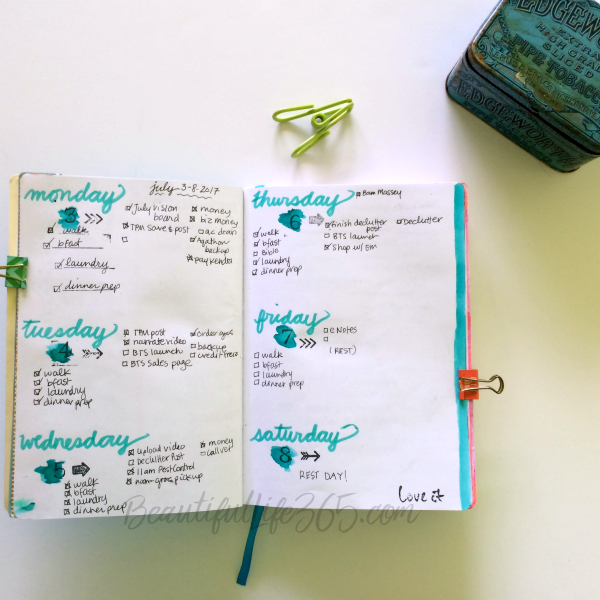 EDGEWORTH
EXTRA
HIGH GRADE
SLICED
PIPE TOBACCO
EDGEWORTH
monday
July 3-8 2017
3
walk
bfast
laundry
dinner prep
July vision
board
TBM save & post
money
biz money
ac drain
Agathon
backup
pay Kendra
tuesday
4
walk
bfast
laundry
dinner prep
TBM post
narrate video
BTS launch
BTS sales page
order
backup
credit freeze
wednesday
5
walk
bfast
laundry
dinner prep
upload video
Declutter Post
11am PostControl
pickup
money
call vet
thursday
8am Massey
6
walk
bfast
Bible
laundry
dinner prep
finish declutter
post
BTS launch
Shop w/Em
Declutter
friday
7
walk
bfast
laundry
dinner prep
eNotes
(REST)
saturday
8
REST DAY!
Love it
BeautifulLife365.com